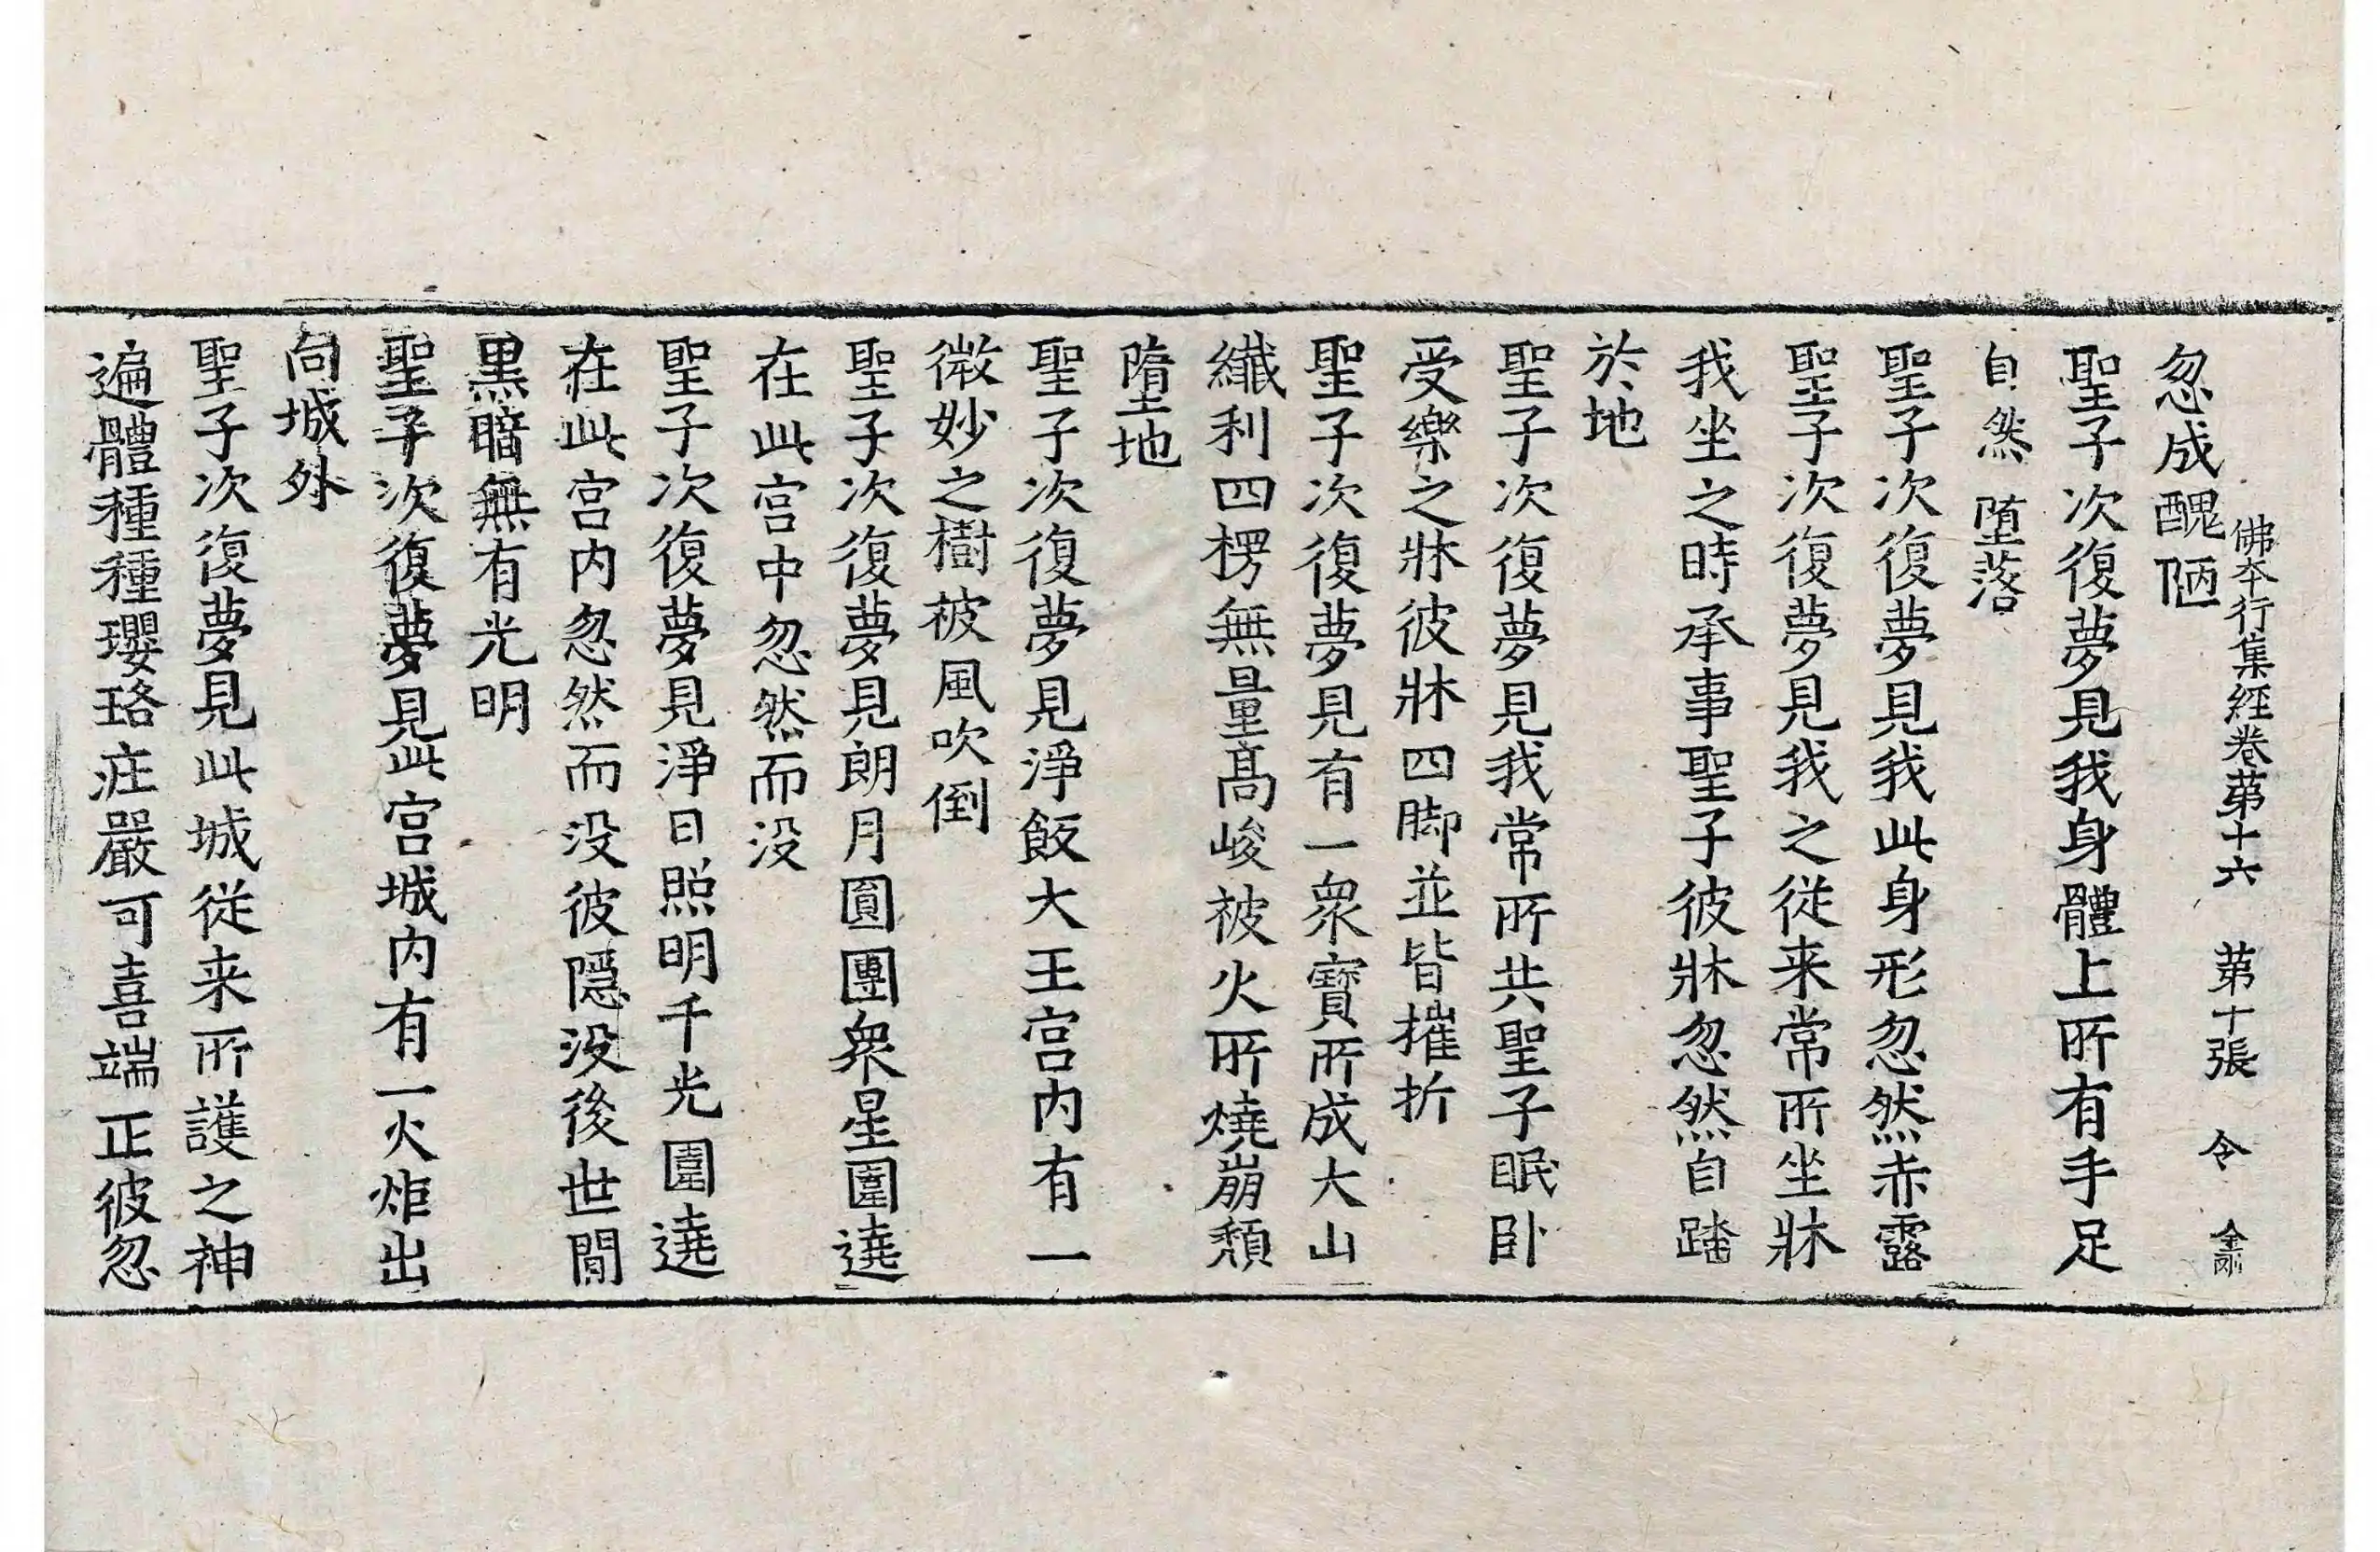 佛夲行集経卷苐十六　苐十張　令　金剛
忽成醜陋
聖子次復夢見我身體上所有手足
自然堕落
聖子次復夢見我此身形忽然赤露
聖子次復夢見我之従来常所坐牀
我坐之時承事聖子彼牀忽然自踏
於地
聖子次復夢見我常所共聖子眠卧
受樂之牀彼牀四脚並皆摧折
聖子次復夢見有一衆寶所成大山
纖利四楞無量髙峻被火所燒崩頽
墮地
聖子次復夢見淨飯大王宫内有一
微妙之樹被風吹倒
聖子次復夢見朗月圓團衆星圍遶
在此宫中忽然而没
聖子次復夢見淨日照明千光圍遶
在此宫内忽然而没彼隱没後世間
黒暗無有光明
聖子次復夢見此宫城内有一火炬出
向城外
聖子次復夢見此城従来所護之神
遍體種種瓔珞莊嚴可喜端正彼忽